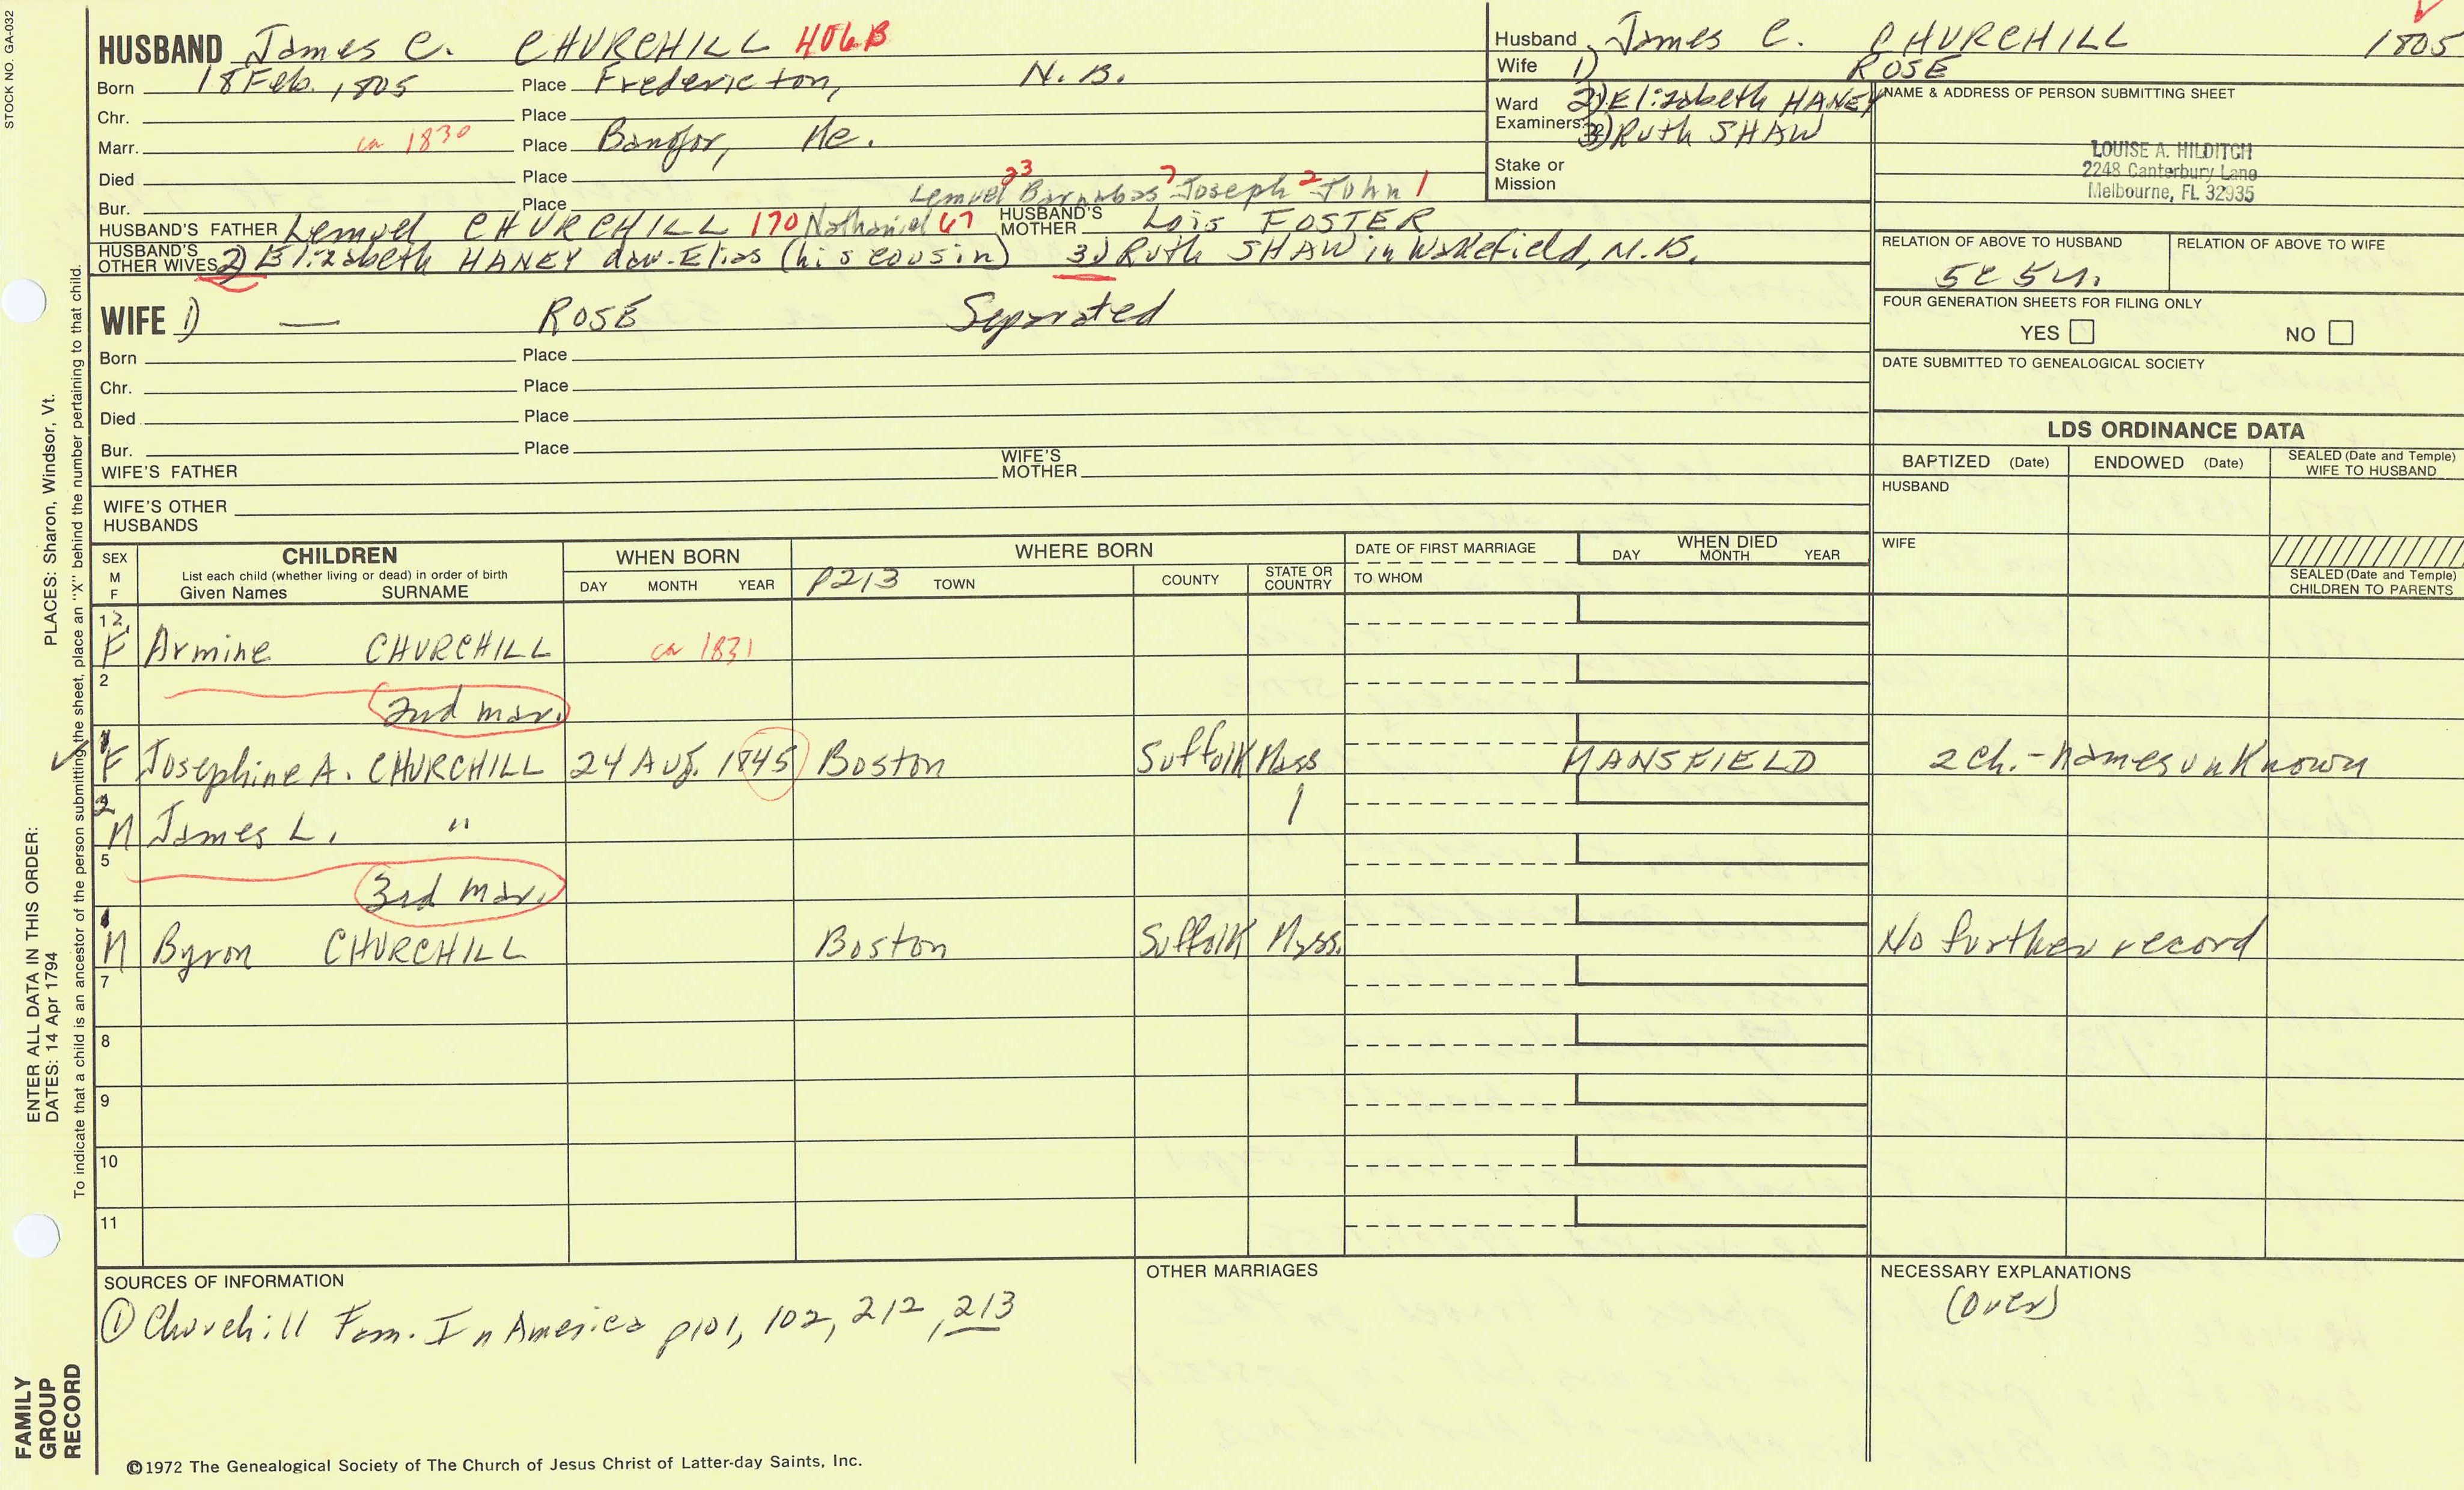 STOCK NO. GA-032
HUSBAND James C. CHURCHILL 406B
Born 18 Feb. 1805 Place Fredericton, N.B.
Chr. Place
Marr. ca 1830 Place Bangor, Me.
Died Place
Lemuel 23 Barnabas 7 Joseph 2 John 1
Bur. Place
HUSBAND'S FATHER Lemuel CHURCHILL 170 Nathaniel 67 HUSBAND'S MOTHER Lois FOSTER
HUSBAND'S OTHER WIVES 2) Elizabeth HANEY dau. Elias (his cousin) 3) Ruth SHAW in Wakefield, N.B.
WIFE 1) — ROSE Separated
Born Place
Chr. Place
Died Place
Bur. Place
WIFE'S FATHER WIFE'S MOTHER
WIFE'S OTHER HUSBANDS
Husband James C. CHURCHILL 1805
Wife 1) ROSE
Ward 2) Elizabeth HANEY
Examiners: 3) Ruth SHAW
Stake or Mission
NAME & ADDRESS OF PERSON SUBMITTING SHEET
LOUISE A. HILDITCH
2248 Canterbury Lane
Melbourne, FL 32935
RELATION OF ABOVE TO HUSBAND RELATION OF ABOVE TO WIFE
FOUR GENERATION SHEETS FOR FILING ONLY
YES NO
DATE SUBMITTED TO GENEALOGICAL SOCIETY
LDS ORDINANCE DATA
BAPTIZED (Date) ENDOWED (Date) SEALED (Date and Temple) WIFE TO HUSBAND
HUSBAND
WIFE
SEALED (Date and Temple) CHILDREN TO PARENTS
SEX M F
CHILDREN
List each child (whether living or dead) in order of birth
Given Names SURNAME
WHEN BORN
DAY MONTH YEAR
WHERE BORN
P213 TOWN COUNTY STATE OR COUNTRY
DATE OF FIRST MARRIAGE
TO WHOM
WHEN DIED
DAY MONTH YEAR
1
F Armine CHURCHILL ca 1831
2
2nd mar.
1
F Josephine A. CHURCHILL 24 Aug. 1845 Boston Suffolk Mass MANSFIELD 2 ch. - names unknown
2
M James L. "
5
3rd mar.
1
M Byron CHURCHILL Boston Suffolk Mass. No further record
7
8
9
10
11
SOURCES OF INFORMATION
① Churchill Fam. In America p101, 102, 212, 213
OTHER MARRIAGES
NECESSARY EXPLANATIONS
(over)
©1972 The Genealogical Society of The Church of Jesus Christ of Latter-day Saints, Inc.
FAMILY GROUP RECORD
ENTER ALL DATA IN THIS ORDER:
DATES: 14 Apr 1794
PLACES: Sharon, Windsor, Vt.
To indicate that a child is an ancestor of the person submitting the sheet, place an "X" behind the number pertaining to that child.